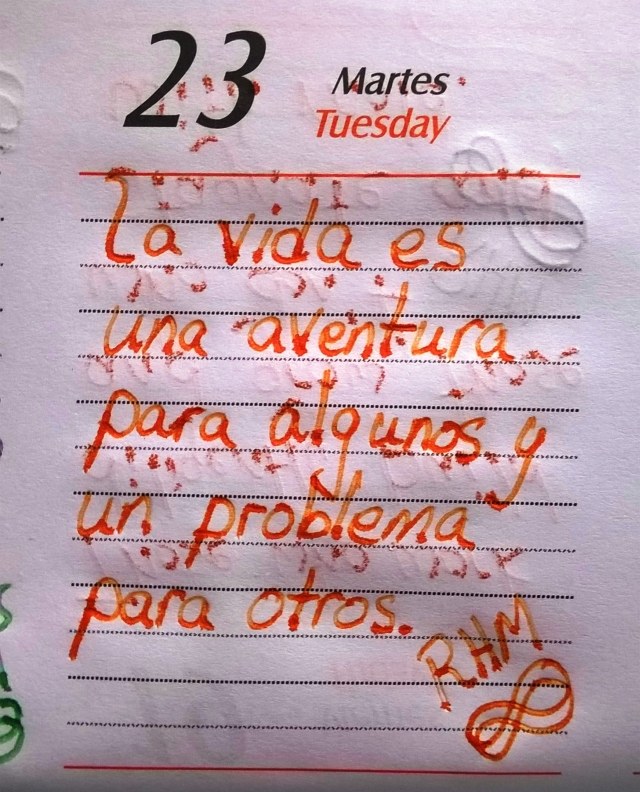 23
Martes
Tuesday
La vida es
una aventura
para algunos y
un problema
para otros.
RHM